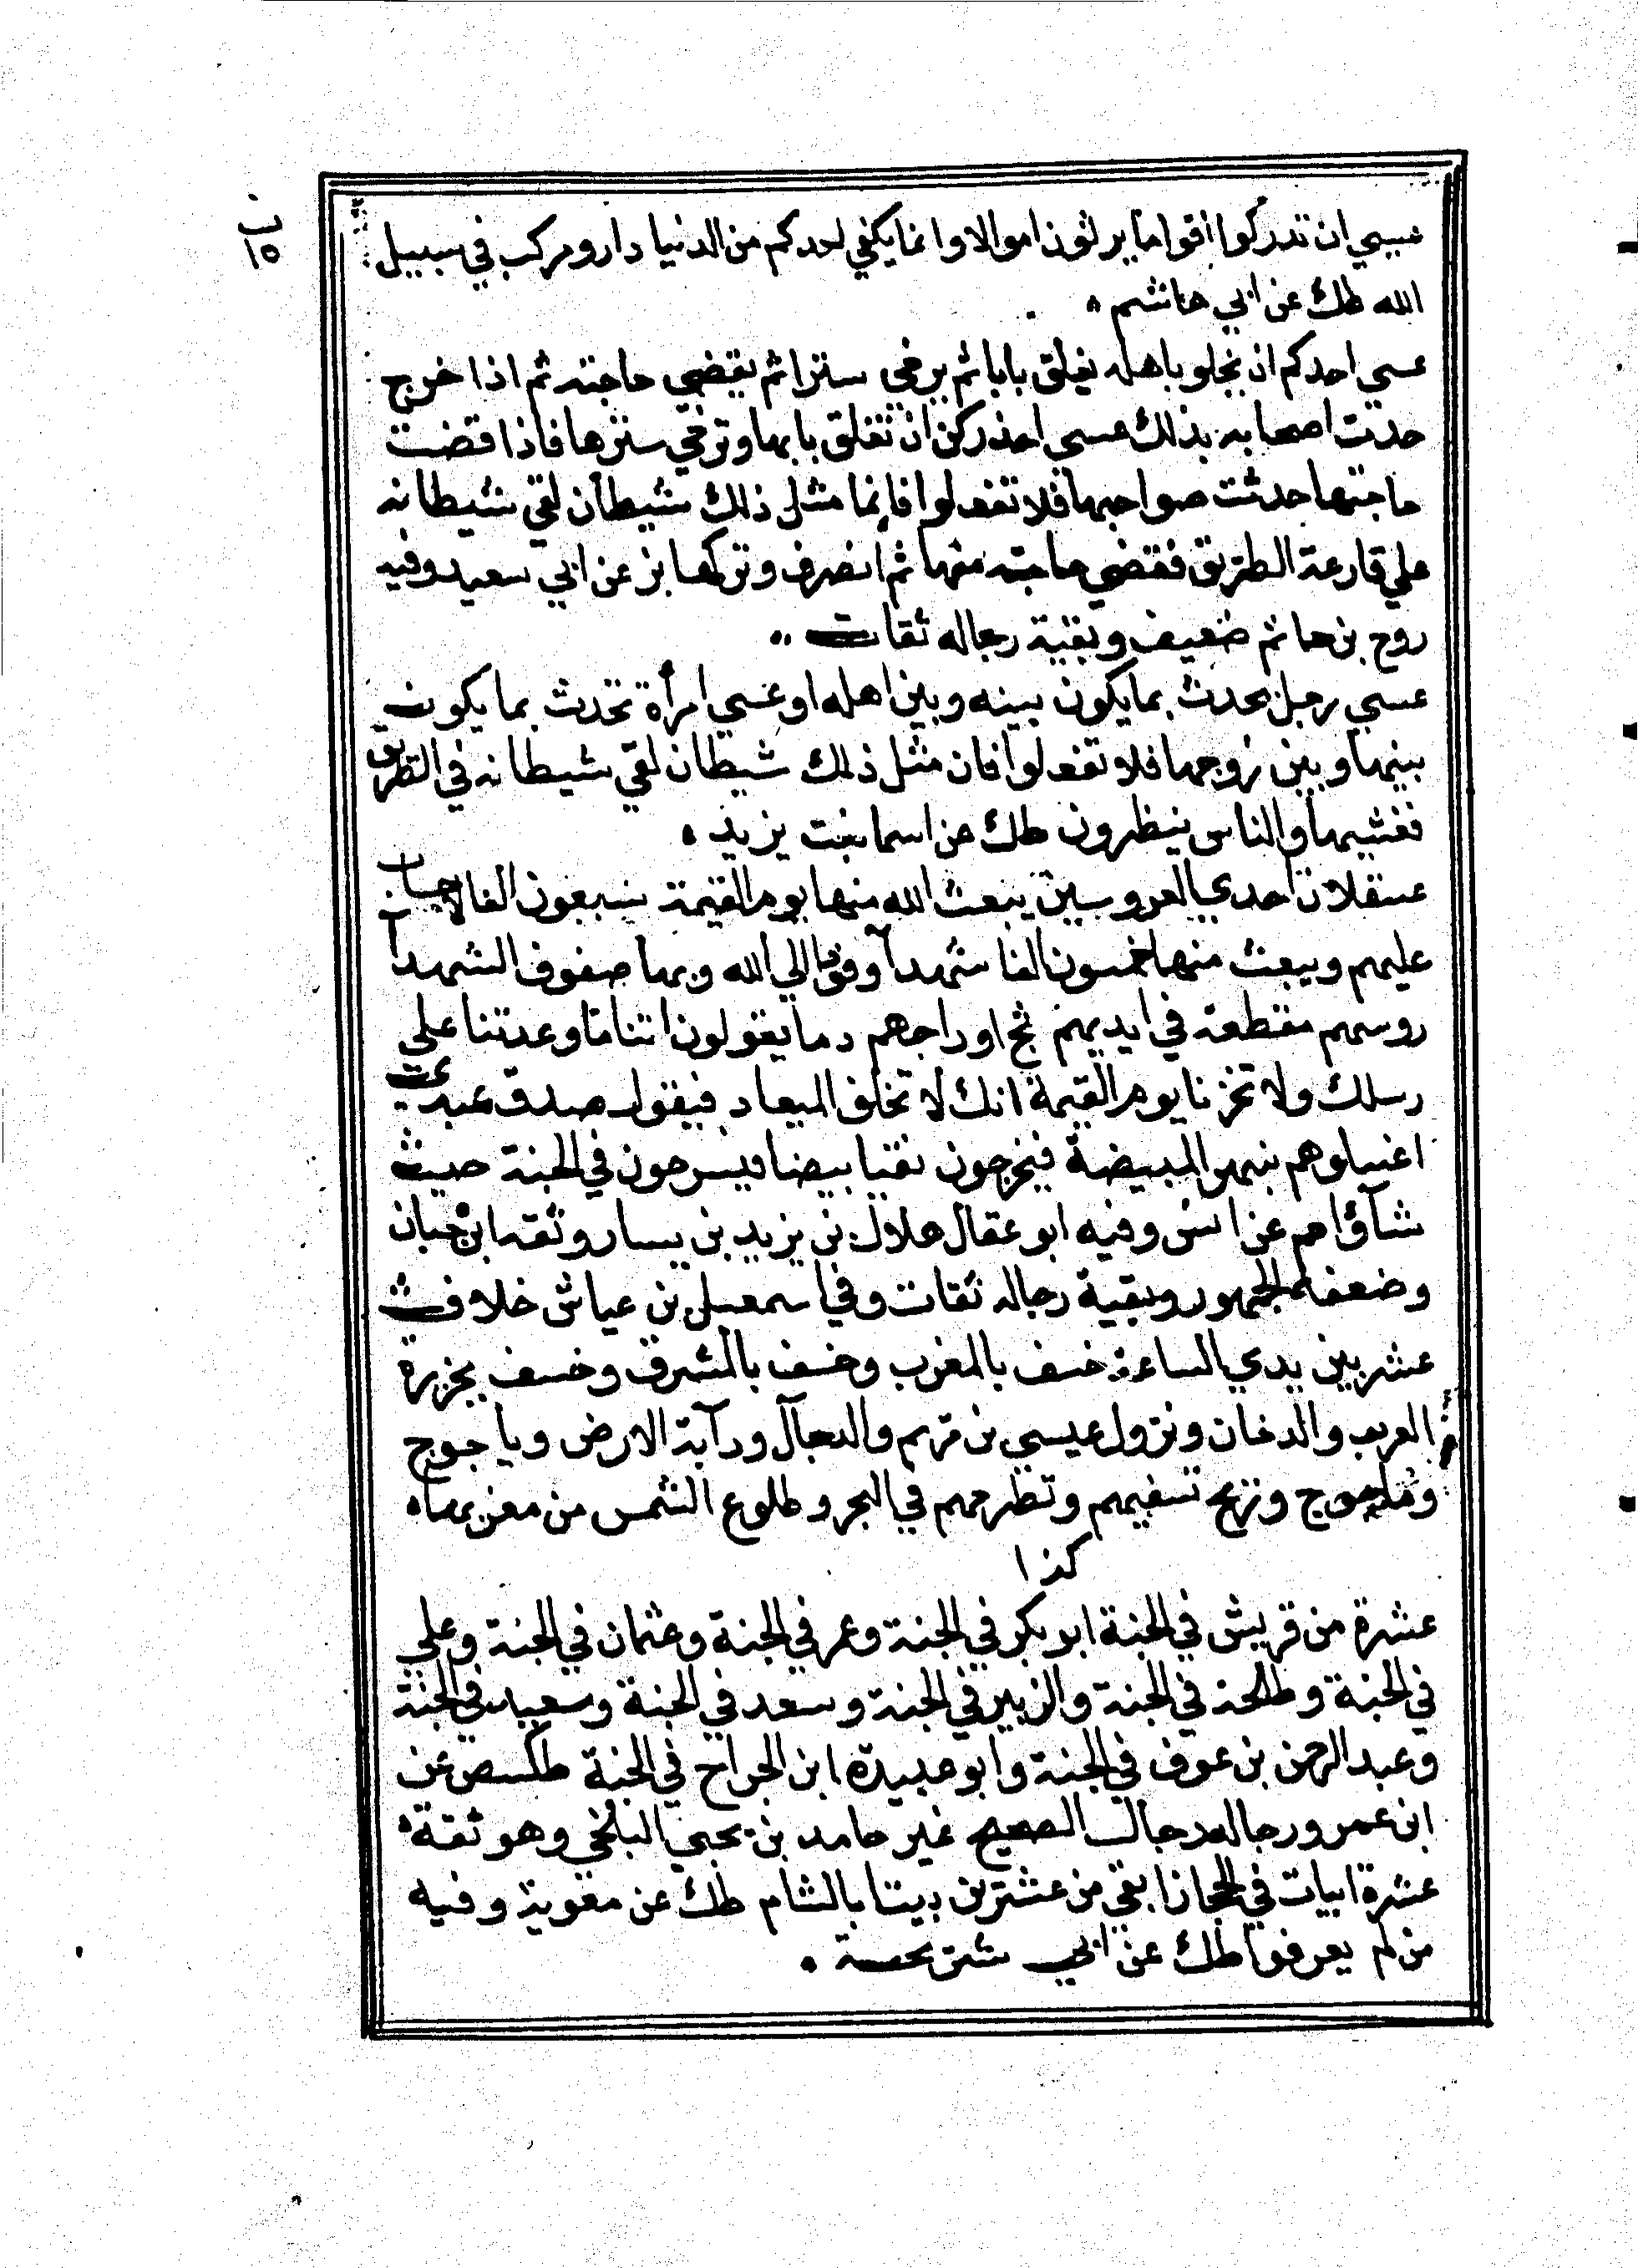 عسي ان تدركوا اقواما يرثون اموالا وانما يكفي احدكم من الدنيا دار ومركب في سبيل
الله طك عن ابي هاشم
عسي احدكم ان يخلو باهله يغلق بابا ثم يرخي سترا ثم يقضي حاجته ثم اذا خرج
حدث اصحابه بذلك عسي احدكن ان تغلق بابها وترخي سترها فاذا قضت
حاجتها حدثت صواحبها فلا تفعلوا فانما مثل ذلك شيطان لقي شيطانه
علي قارعة الطريق فقضي حاجته منها ثم انصرف وتركها بز عن ابي سعيد وفيه
روح بن حاتم ضعيف وبقية رجاله ثقات
عسي رجل يحدث بما يكون بينه وبين اهله او عسي امرأة تحدث بما يكون
بينها وبين زوجها فلا تفعلوا فان مثل ذلك شيطان لقي شيطانه في الطريق
فغشيها والناس ينظرون طك عن اسما بنت يزيد
عسقلان احدي العروسين يبعث الله منها يوم القيمة سبعون الفا لا حساب
عليهم ويبعث منها خمسون الفا شهدآ وفودا الي الله وبها صفوف الشهدآ
روسهم مقطعة في ايديهم ثج اوداجهم دما يقولون اتنا ما وعدتنا علي
رسلك ولا تخزنا يوم القيمة انك لا تخلف الميعاد فيقول صدق عبدي
اغسلوهم بنهر البيضة فيخرجون نقيا بيضا فيسرحون في الجنة حيث
شآؤا حم عن انس وفيه ابو عقال هلال بن يزيد بن يسار وثقه ابن حبان
وضعفه الجمهور وبقية رجاله ثقات وفي اسمعيل بن عياش خلاف
عشر بين يدي الساعة خسف بالمغرب وخسف بالمشرق وخسف بجزيرة
العرب والدخان ونزول عيسي بن مريم والدجآل ودآبة الارض وياجوج
وماجوج وريح تسفيهم وتطرحهم في البحر وطلوع الشمس من مغربها
كذا
عشرة من قريش في الجنة ابو بكر في الجنة وعمر في الجنة وعثمان في الجنة وعلي
في الجنة وطلحة في الجنة والزبير في الجنة وسعد في الجنة وسعيد في الجنة
وعبد الرحمن بن عوف في الجنة وابو عبيدة ابن الجراح في الجنة طكسص عن
ابن عمر ورجاله رجال الصحيح غير حامد بن يحيي البلخي وهو ثقة
عشرة ابيات في الحجاز ابقي من عشرين بيتا بالشام طك عن معوية وفيه
من لم يعرفوا طك عن ابي